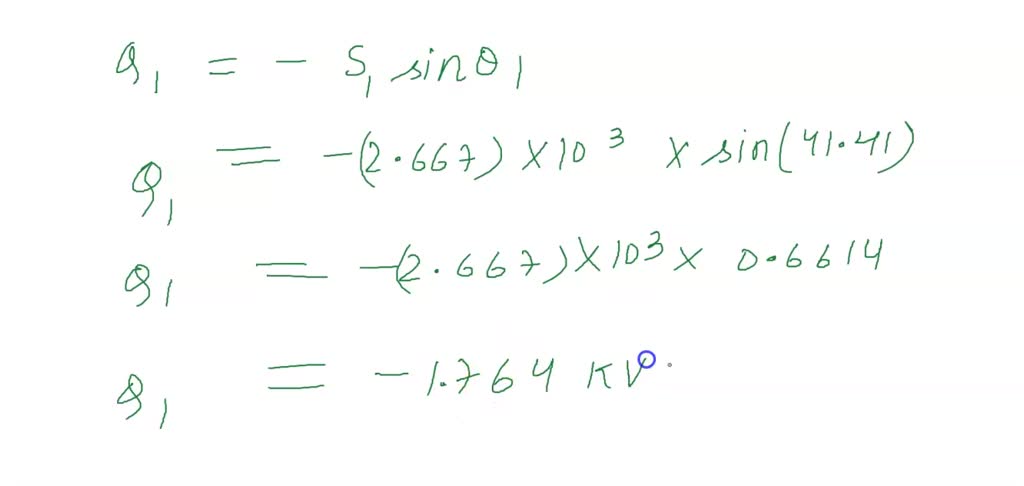 Q₁ = - S₁ sinθ₁
Q₁ = -(2.667) × 10³ × sin(41.41)
Q₁ = -(2.667) × 10³ × 0.6614
Q₁ = -1.764 KV